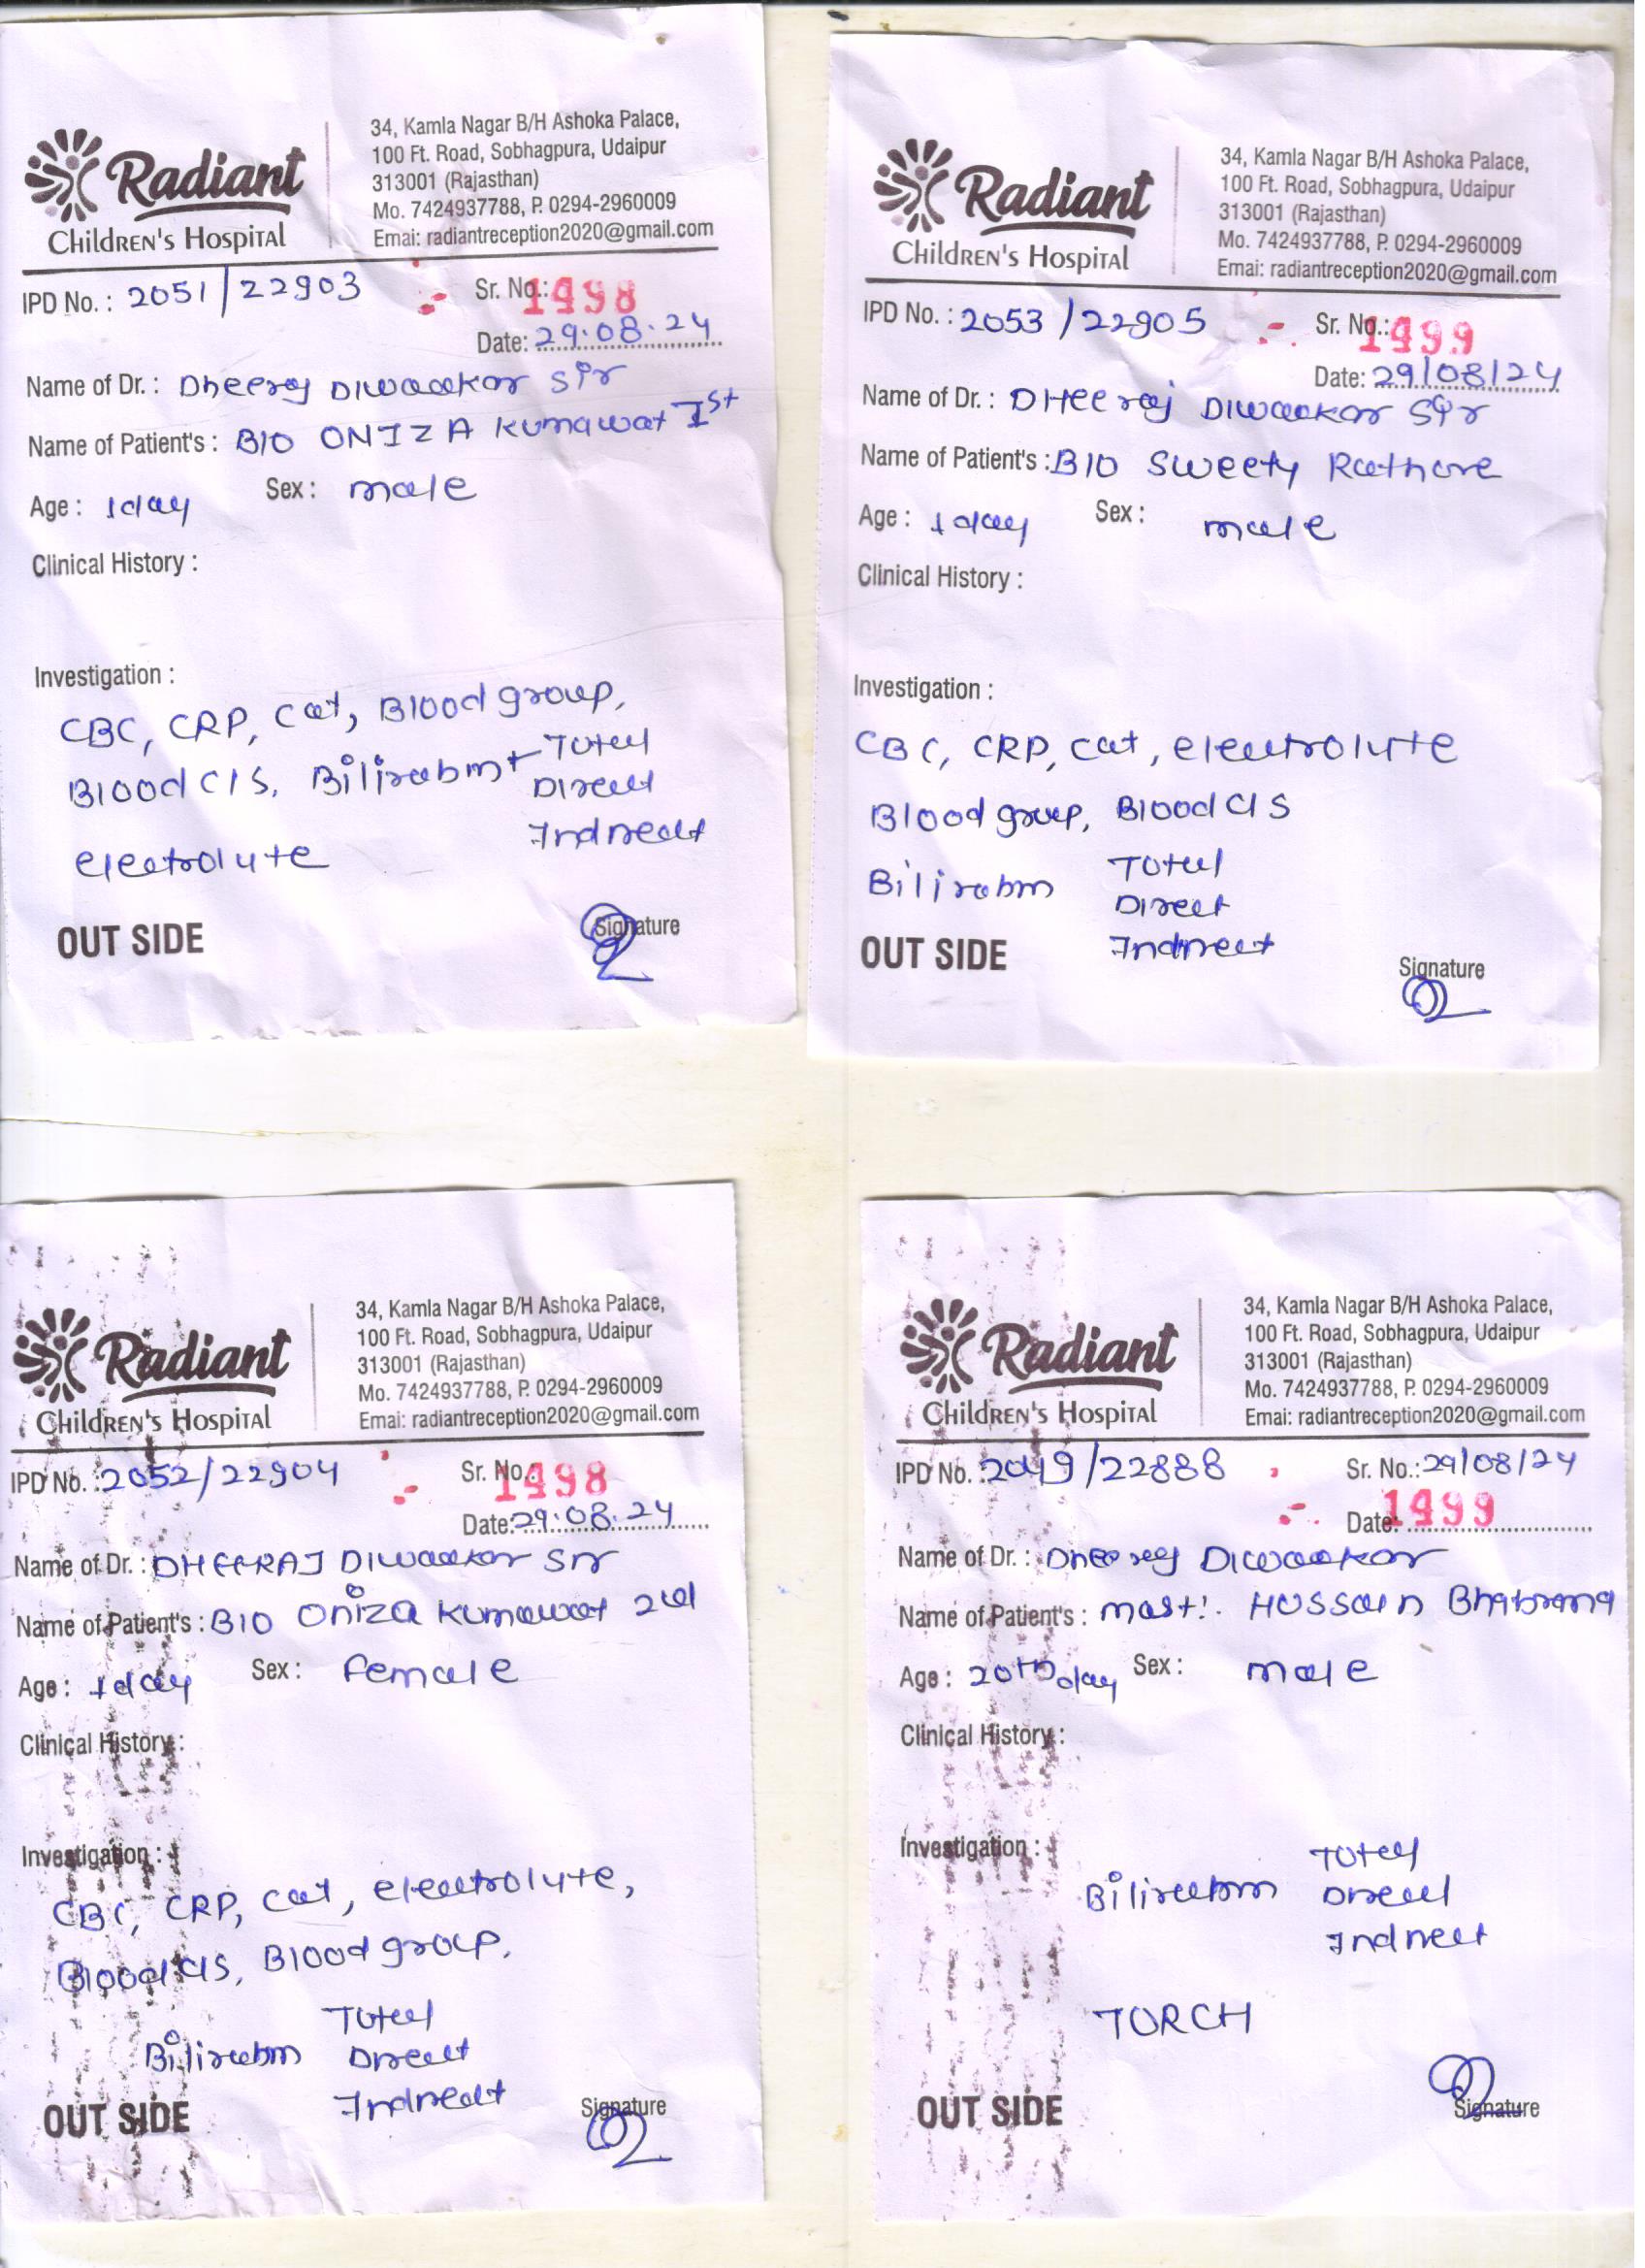 Radiant
Children's Hospital
34, Kamla Nagar B/H Ashoka Palace,
100 Ft. Road, Sobhagpura, Udaipur
313001 (Rajasthan)
Mo. 7424937788, P. 0294-2960009
Emai: radiantreception2020@gmail.com
IPD No. : 2051/22903 Sr. No.: 1498
Date: 29.08.24
Name of Dr. : Dheeraj Diwaakar Sir
Name of Patient's : B/O ONIZA Kumawat Ist
Age : 1day Sex : male
Clinical History :
Investigation :
CBC, CRP, Cat, Blood group,
Blood C/S, Bilirubin Total
Direct
Indirect
electrolyte
OUT SIDE Signature
Radiant
Children's Hospital
34, Kamla Nagar B/H Ashoka Palace,
100 Ft. Road, Sobhagpura, Udaipur
313001 (Rajasthan)
Mo. 7424937788, P. 0294-2960009
Emai: radiantreception2020@gmail.com
IPD No. : 2053/22905 Sr. No.: 1499
Date: 29/08/24
Name of Dr. : DHeeraj Diwaakar Sir
Name of Patient's : B/O Sweety Rathore
Age : 1day Sex : male
Clinical History :
Investigation :
CBC, CRP, Cat, electrolyte
Blood group, Blood C/S
Bilirubin Total
Direct
Indirect
OUT SIDE
Signature
Radiant
Children's Hospital
34, Kamla Nagar B/H Ashoka Palace,
100 Ft. Road, Sobhagpura, Udaipur
313001 (Rajasthan)
Mo. 7424937788, P. 0294-2960009
Emai: radiantreception2020@gmail.com
IPD No. : 2052/22904 Sr. No.: 1498
Date: 29.08.24
Name of Dr. : DHEERAJ Diwaakar Sir
Name of Patient's : B/O Oniza Kumawat 2nd
Age : 1day Sex : female
Clinical History :
Investigation :
CBC, CRP, Cat, electrolyte,
Blood C/S, Blood group,
Total
Bilirubin Direct
Indirect
OUT SIDE Signature
Radiant
Children's Hospital
34, Kamla Nagar B/H Ashoka Palace,
100 Ft. Road, Sobhagpura, Udaipur
313001 (Rajasthan)
Mo. 7424937788, P. 0294-2960009
Emai: radiantreception2020@gmail.com
IPD No. : 2049/22888 Sr. No.: 29/08/24
Date: 1499
Name of Dr. : Dheeraj Diwaakar
Name of Patient's : mast. HUSSAIN
Age : 20th day Sex : male
Clinical History :
Investigation :
Total
Bilirubin Direct
Indirect
TORCH
OUT SIDE Signature